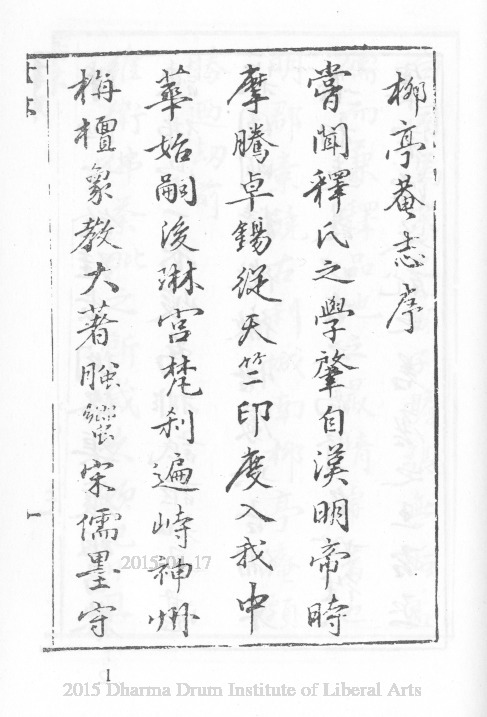 柳亭菴志序
嘗聞釋氏之學肇自漢明帝時
摩騰卓錫從天竺印度入我中
華始嗣後琳宮梵刹遍峙神州
栴檀象教大著宋儒墨守
2015-04-17
1
2015 Dharma Drum Institute of Liberal Arts